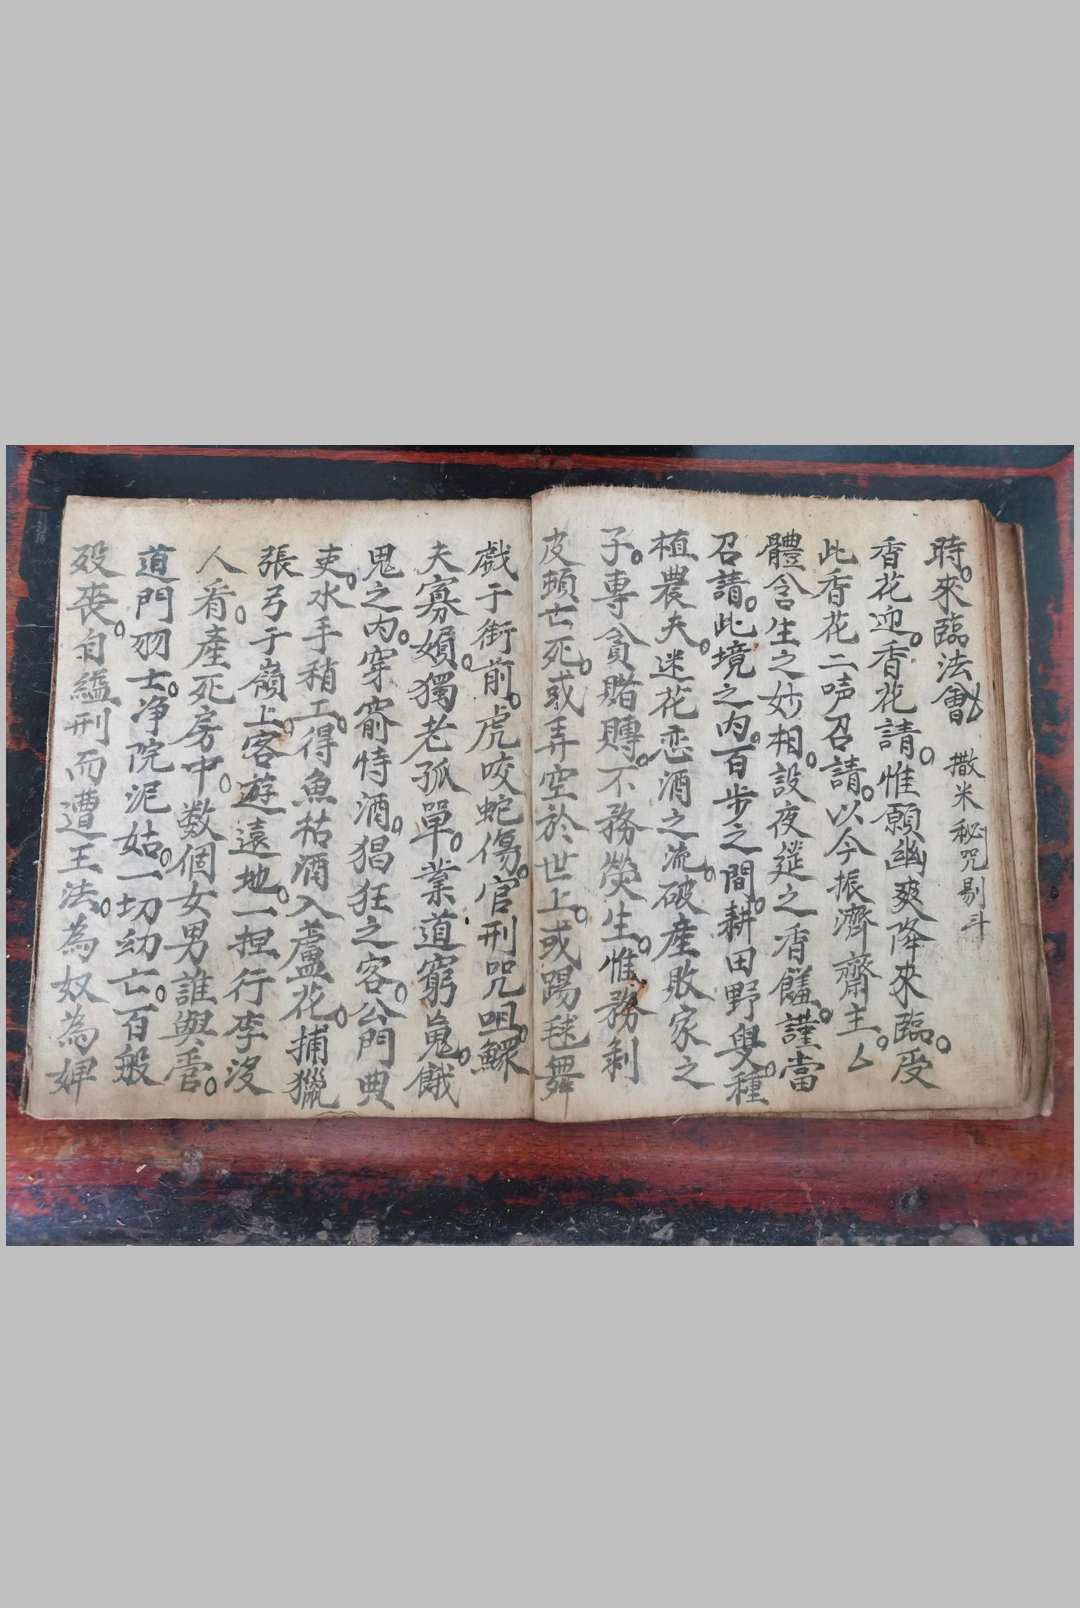 時。來臨法會 撒米秘咒剔斗
香花迎。香花請。惟願幽爽降來臨。受
此香花二唪召請。以今振濟齋主厶
體含生之妙相。設夜筵之香饈。謹當
召請。此境之内。百步之間。耕田野叟。種
植農夫。迷花恋酒之流。破產敗家之
子。專貪賭賻。不務熒生。惟務剩
皮頓亡死。或弄空於世上。或踢毬舞
戲于街前。虎咬蛇傷。官刑咒咀。鰥
夫寡婦。獨老孤單。業道窮嵬。餓
鬼之内。穿窬恃酒。猖狂之客。公門典
吏。水手稍工。得魚秙酒入蘆花。捕獵
張弓于嶺上。客遊遠地。一担行李沒
人看。產死房中。数個女男誰與畜。
道門羽士。净院泥姑。一切幼亡。百般
殁喪。自縊刑而遭王法。為奴為婢